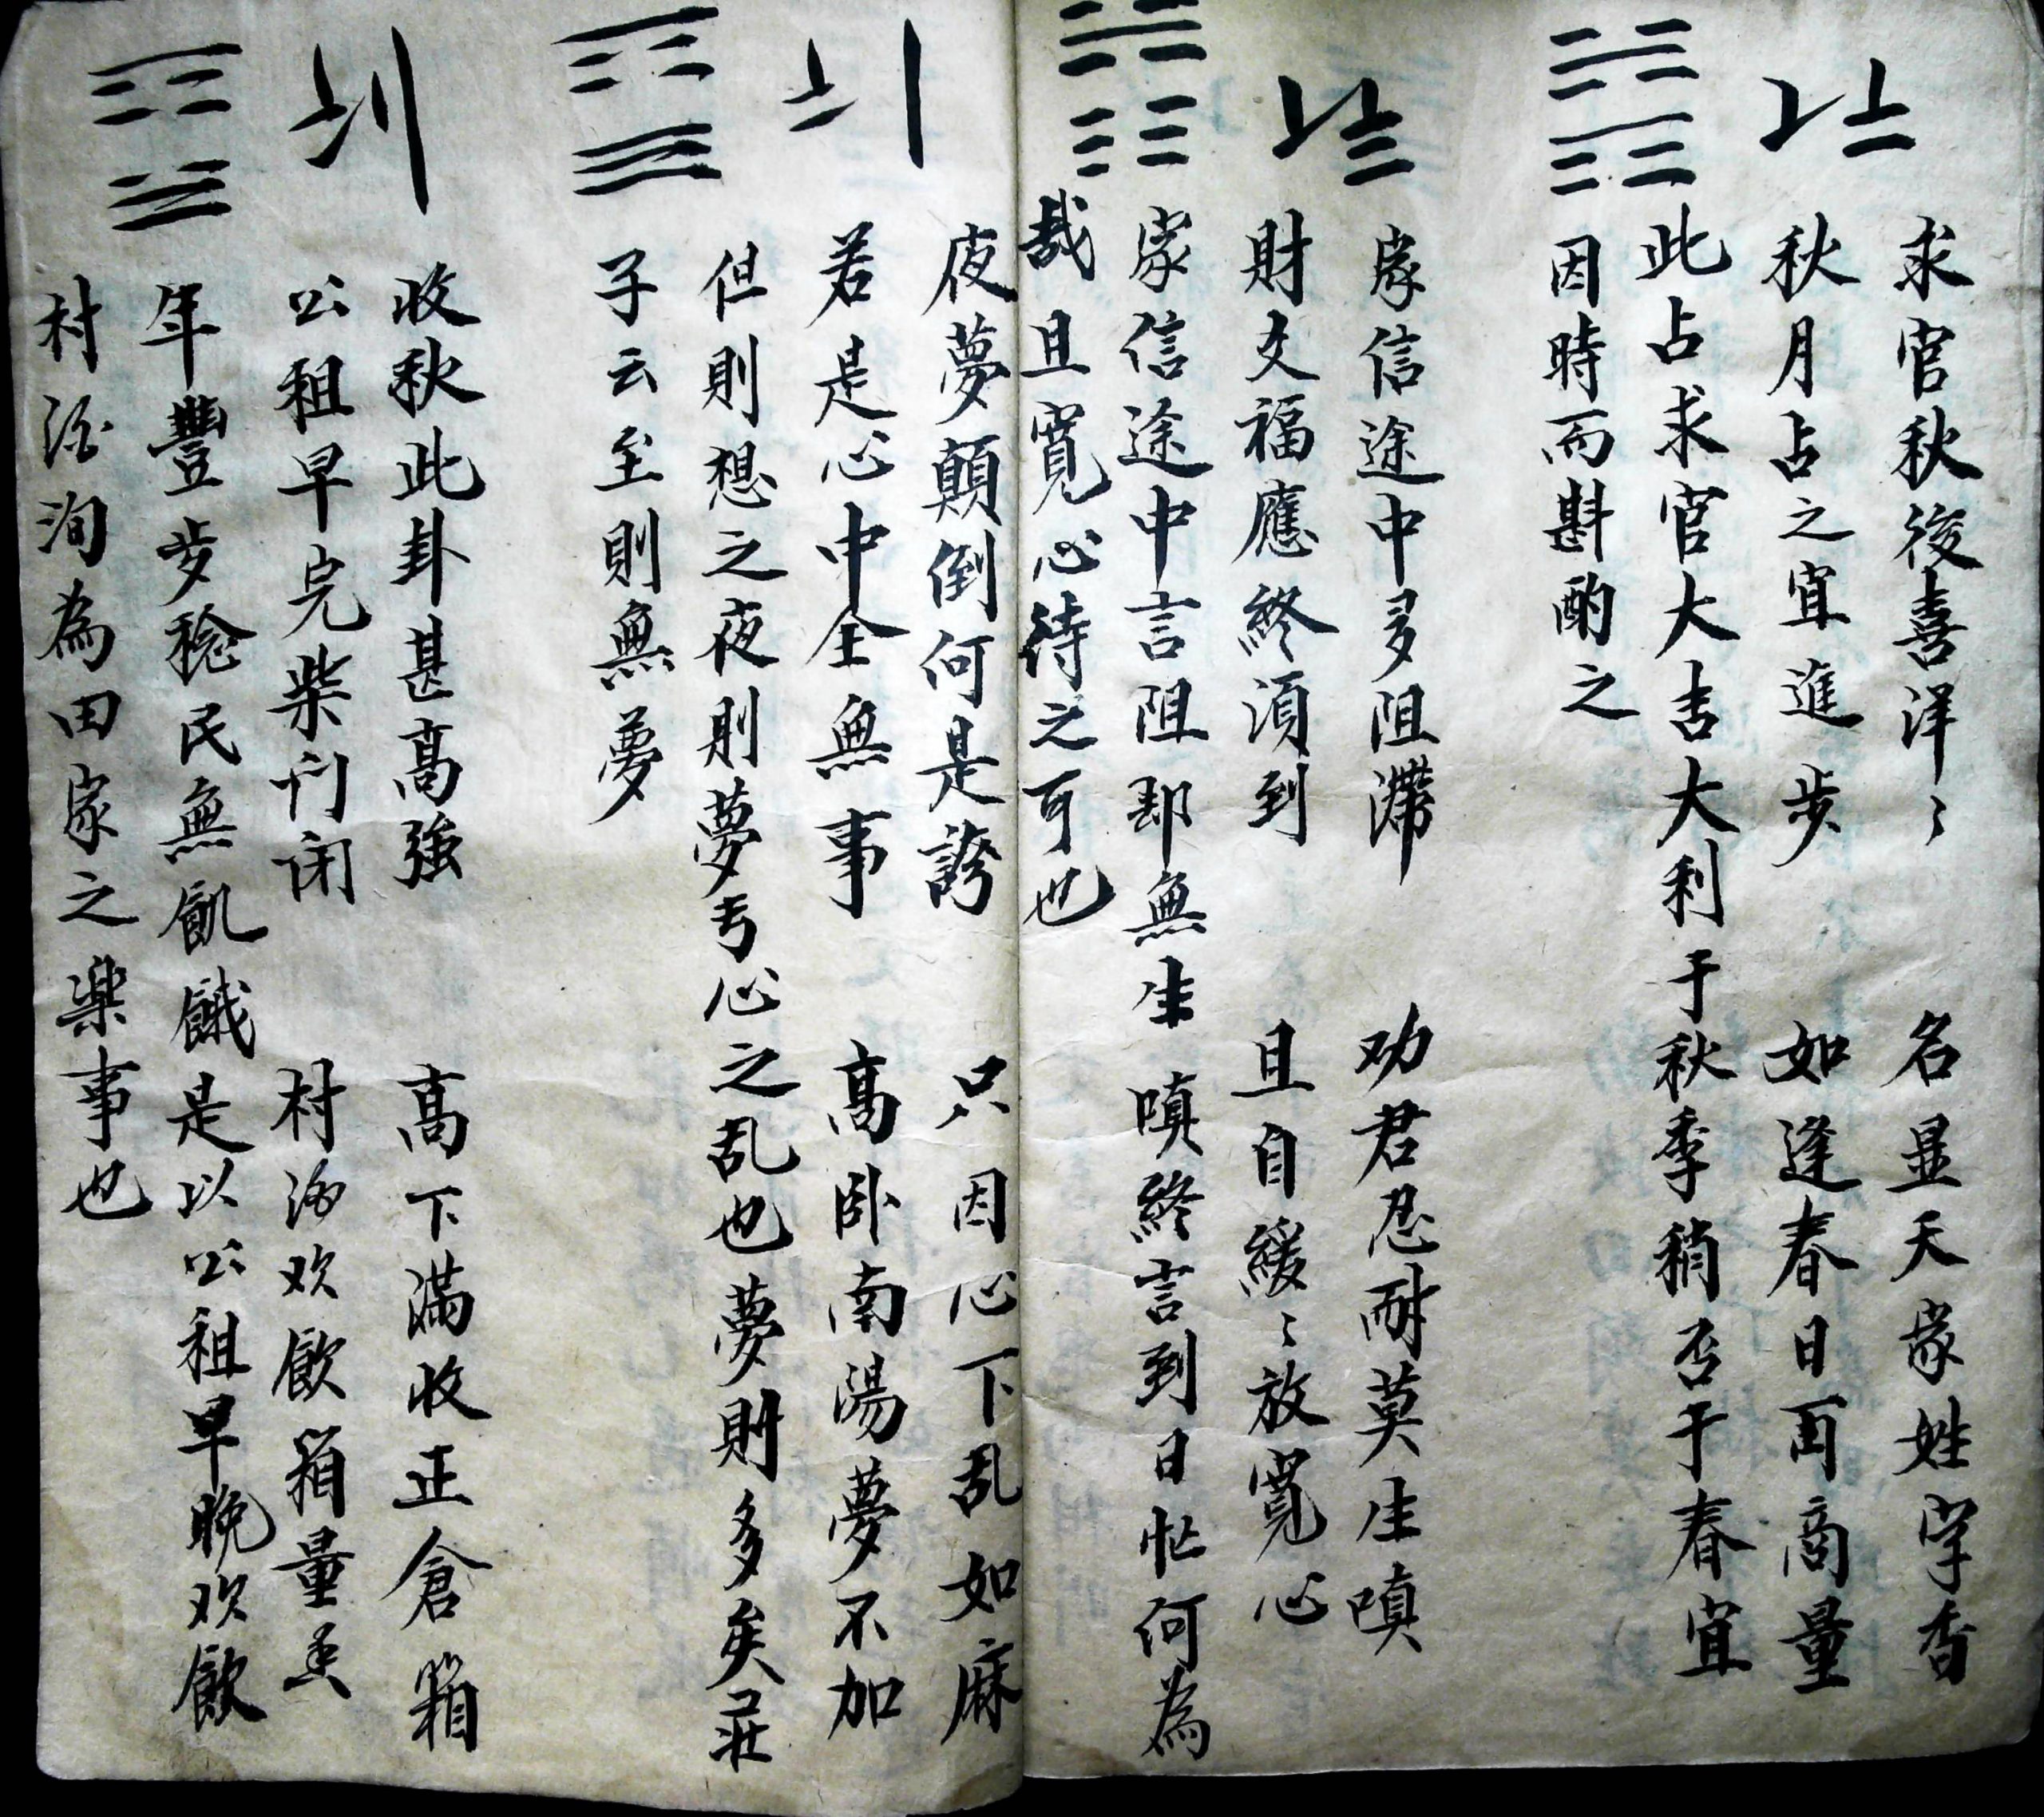 求官秋後喜洋〻　名显天家姓字香
秋月占之宜進步　如逢春日再商量
此占求官大吉大利于秋季稍否于春宜
因時而斟酌之
家信途中多阻滯　劝君忍耐莫生嗔
財文福應終須到　且自緩〻放寬心
家信途中言阻却無生嗔終言到日忙何為
哉且寬心待之可也
夜夢顛倒何是誇　只因心下乱如麻
若是心中全無事　高卧南湯夢不加
但則想之夜則夢丐心之乱也夢則多矣莊
子云至則無夢
收秋此卦甚高強　高下滿收正倉箱
公租早完柴门闭　村酒欢飲箱量
年豐步稔民無飢餓是以公租早晚欢飲
村酒洵為田家之樂事也